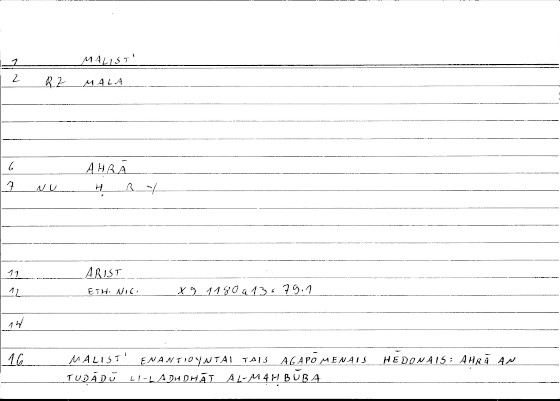 1 MALIST'
2 RZ MALA
6 AḤRĀ
7 NU Ḥ R Y
11 ARIST
12 ETH. NIC. X9 1180a13: 79.1
14
16 MALIST' ENANTIOYNTAI TAIS AGAPŌMENAIS HĒDONAIS: AḤRĀ AN
TUḌĀDŪ LI-LADHDHĀT AL-MAḤBŪBA